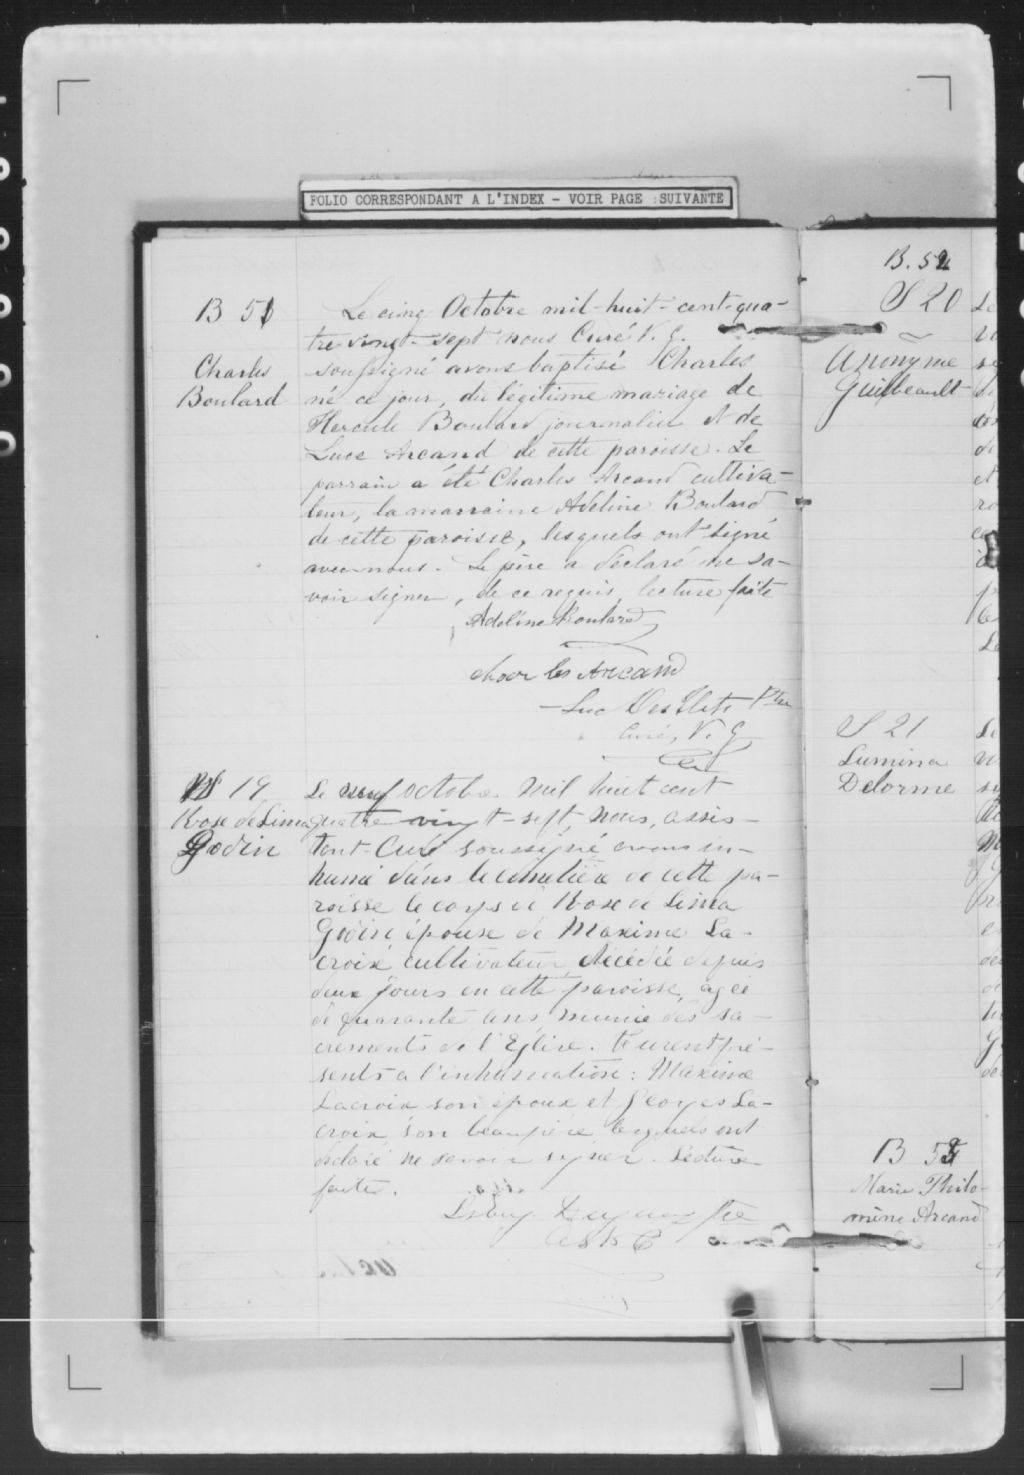 FOLIO CORRESPONDANT A L'INDEX - VOIR PAGE SUIVANTE
B 51
Charles
Boulard
Le cinq Octobre mil-huit-cent-qua-
tre-vingt-sept nous Curé V. G.
soussigné avons baptisé Charles
né ce jour, du légitime mariage de
Hercule Boulard journalier & de
Luce Arcand de cette paroisse. Le
parrain a été Charles Arcand cultiva-
teur, la marraine Adeline Boulard
de cette paroisse, lesquels ont signé
avec nous. Le père a déclaré ne sa-
voir signer, de ce requis, lecture faite
Adeline Boulard
Charles Arcand
Luc Desilets Ptre
Curé, V. G.
S 19
Rose de Lima
Godin
Le neuf octobre mil huit cent
quatre vingt-sept, nous, assis-
tant-Curé soussigné avons in-
humé dans le cimetière de cette pa-
roisse le corps de Rose de Lima
Godin épouse de Maxime La-
croix cultivateur décédée depuis
deux jours en cette paroisse, agée
de quarante ans munie des sa-
crements de l'Eglise. Furent pré-
sents a l'inhumation: Maxime
Lacroix son époux et Georges La-
croix son beaupère lesquels ont
déclaré ne savoir signer. Lecture
faite.
Ptre
B. 52
S 20
Anonyme
Guilbeault
S 21
Lumina
Delorme
B 53
Marie Philo-
mène Arcand